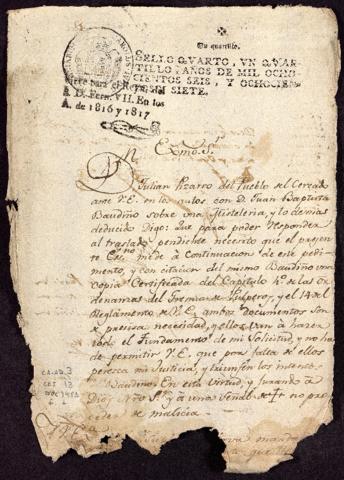 Un quartillo.
SELLO QVARTO, VN QVAR-
TILLO, AÑOS DE MIL OCHO-
CIENTOS SEIS, Y OCHOCIEN-
TOS SIETE.
Sirve para el Reynado
de D. Fern. VII. En los
A. de 1816 y 1817
Exmo. Sr.
Julian Pizarro del Pueblo del Cercado
ante V.E. en los autos con D. Juan Baptista
Baudino sobre una y lo demas
deducido Digo: que para poder responder
al traslado pendiente necesito que el presen-
te Esc.no me dé a continuacion de este pedi-
mento, y con citacion del mismo Baudino una
copia Certificada del Capitulo 4.o de las Or-
denanzas del Gremio de Pulperos, y el 14 del
Reglamento de V.E. ambos documentos son
de precisa necesidad, y ellos van á hazer
todo el Fundamento de mi Solicitud, y no ha
de permitir V.E. que por falta de ellos
peresca mi Justicia, y triunfen los intentos
Baudino En esta Virtud, y jurando á
Dios Nro Sr. y á una Señal de + no pro-
ceder de malicia.
mand
que